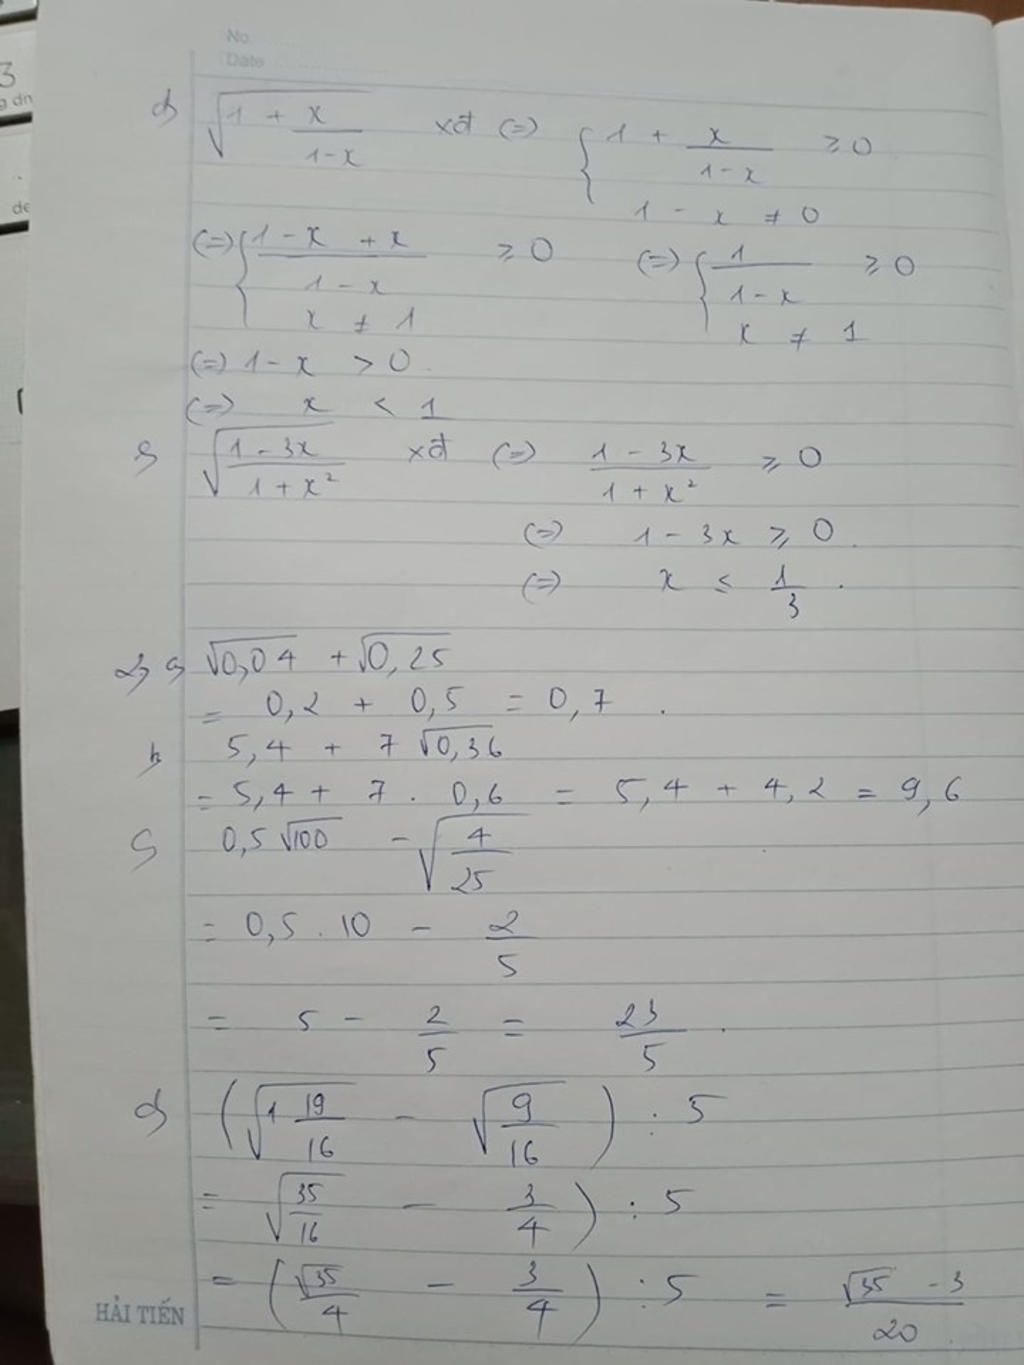 No.
Date
d) √(1 + x/(1-x)) xđ (=) { 1 + x/(1-x) ⩾ 0
1 - x ≠ 0
(=) { (1-x+x)/(1-x) ⩾ 0 (=) { 1/(1-x) ⩾ 0
x ≠ 1 x ≠ 1
(=) 1-x > 0.
(=) x < 1
√((1-3x)/(1+x²)) xđ (=) (1-3x)/(1+x²) ⩾ 0
(=) 1-3x ⩾ 0.
(=) x ≤ 1/3.
2, a, √0,04 + √0,25
= 0,2 + 0,5 = 0,7.
b, 5,4 + 7 √0,36
= 5,4 + 7 . 0,6 = 5,4 + 4,2 = 9,6
c, 0,5 √100 - √(4/25)
= 0,5 . 10 - 2/5
= 5 - 2/5 = 23/5.
d, (√(1 19/16) - √(9/16)) : 5
= √(35/16) - 3/4) : 5
= (√35/4 - 3/4) : 5 = (√35 - 3)/20.
HẢI TIẾN
3
de